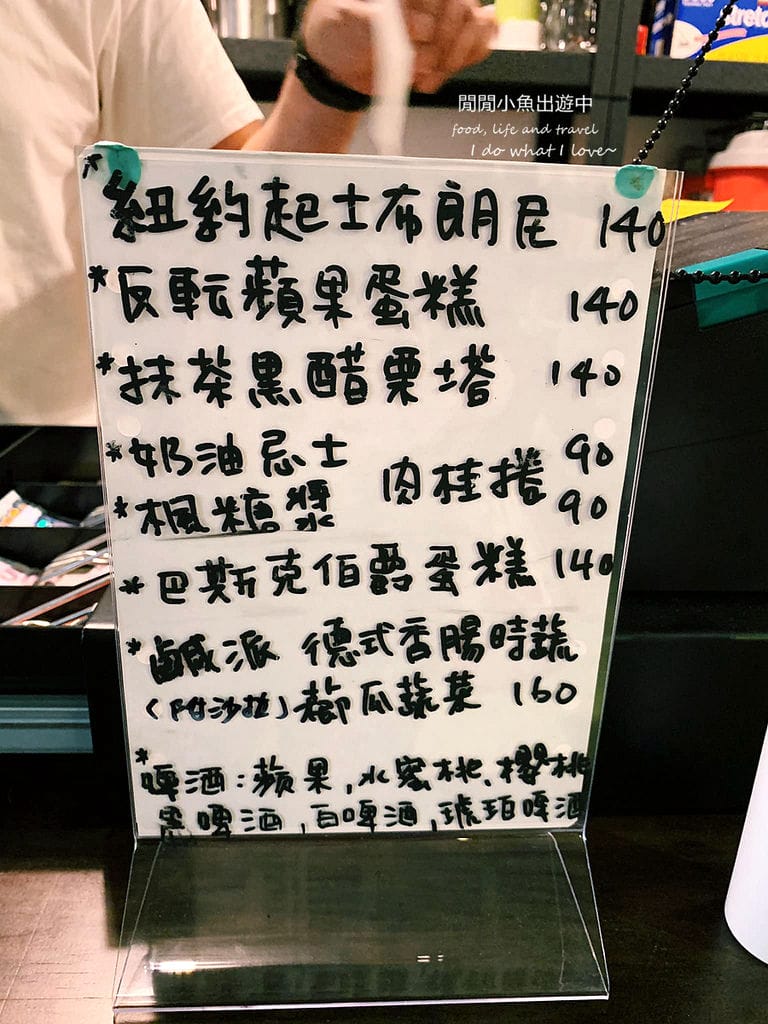 閒閒小魚出遊中
food, life and travel
I do what I love~
Stretch
*紐約起士布朗尼 140
*反転蘋果蛋糕 140
*抹茶黑醋栗塔 140
*奶油忌士 90
肉桂捲
*楓糖漿 90
*巴斯克伯爵蛋糕 140
*鹹派 德式香腸時蔬
(附沙拉) 櫛瓜蔬菜 160
*啤酒:蘋果,水蜜桃、櫻桃
黑啤酒,白啤酒,琥珀啤酒